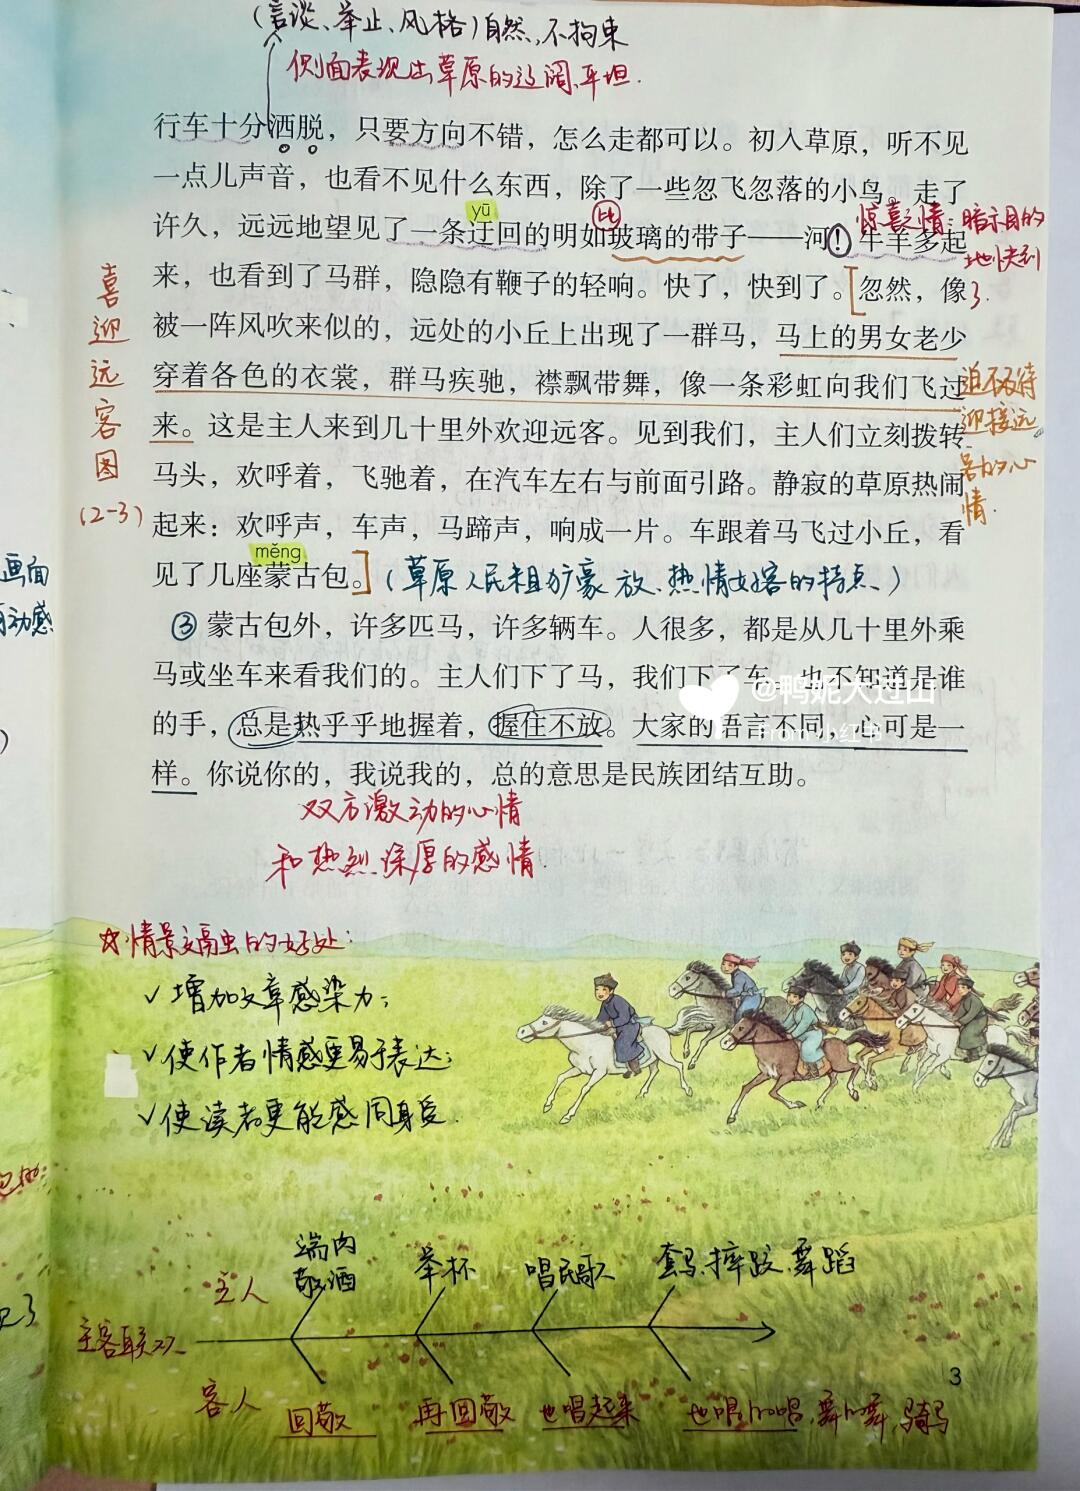 (言谈、举止、风格)自然,不拘束
侧面表现出草原的辽阔、平坦.
行车十分洒脱，只要方向不错，怎么走都可以。初入草原，听不见
一点儿声音，也看不见什么东西，除了一些忽飞忽落的小鸟。走了
yū
比
许久，远远地望见了一条迂回的明如玻璃的带子——河！牛羊多起
惊喜之情;暗示目的
地快到
了.
来，也看到了马群，隐隐有鞭子的轻响。快了，快到了。[忽然，像
被一阵风吹来似的，远处的小丘上出现了一群马，马上的男女老少
穿着各色的衣裳，群马疾驰，襟飘带舞，像一条彩虹向我们飞过
来。这是主人来到几十里外欢迎远客。见到我们，主人们立刻拨转
马头，欢呼着，飞驰着，在汽车左右与前面引路。静寂的草原热闹
起来：欢呼声，车声，马蹄声，响成一片。车跟着马飞过小丘，看
迫不及待
迎接远
客的心
情.
měng
见了几座蒙古包。](草原人民粗犷豪放、热情好客的特点)
喜
迎
远
客
图
(2-3)
画面
动感
③蒙古包外，许多匹马，许多辆车。人很多，都是从几十里外乘
马或坐车来看我们的。主人们下了马，我们下了车，也不知道是谁
的手，总是热乎乎地握着，握住不放。大家的语言不同，心可是一
样。你说你的，我说我的，总的意思是民族团结互助。
@鸭妮大过山
From 小红书
双方激动的心情
和热烈、深厚的感情.
☆情景交融的好处:
✓增加文章感染力;
✓使作者情感更易于表达;
✓使读者更能感同身受.
主人
端肉
敬酒
举杯
唱民歌
套马、摔跤、舞蹈
主客联欢
客人
回敬
再回敬
也唱起来
也唱的唱,舞的舞,骑马
3